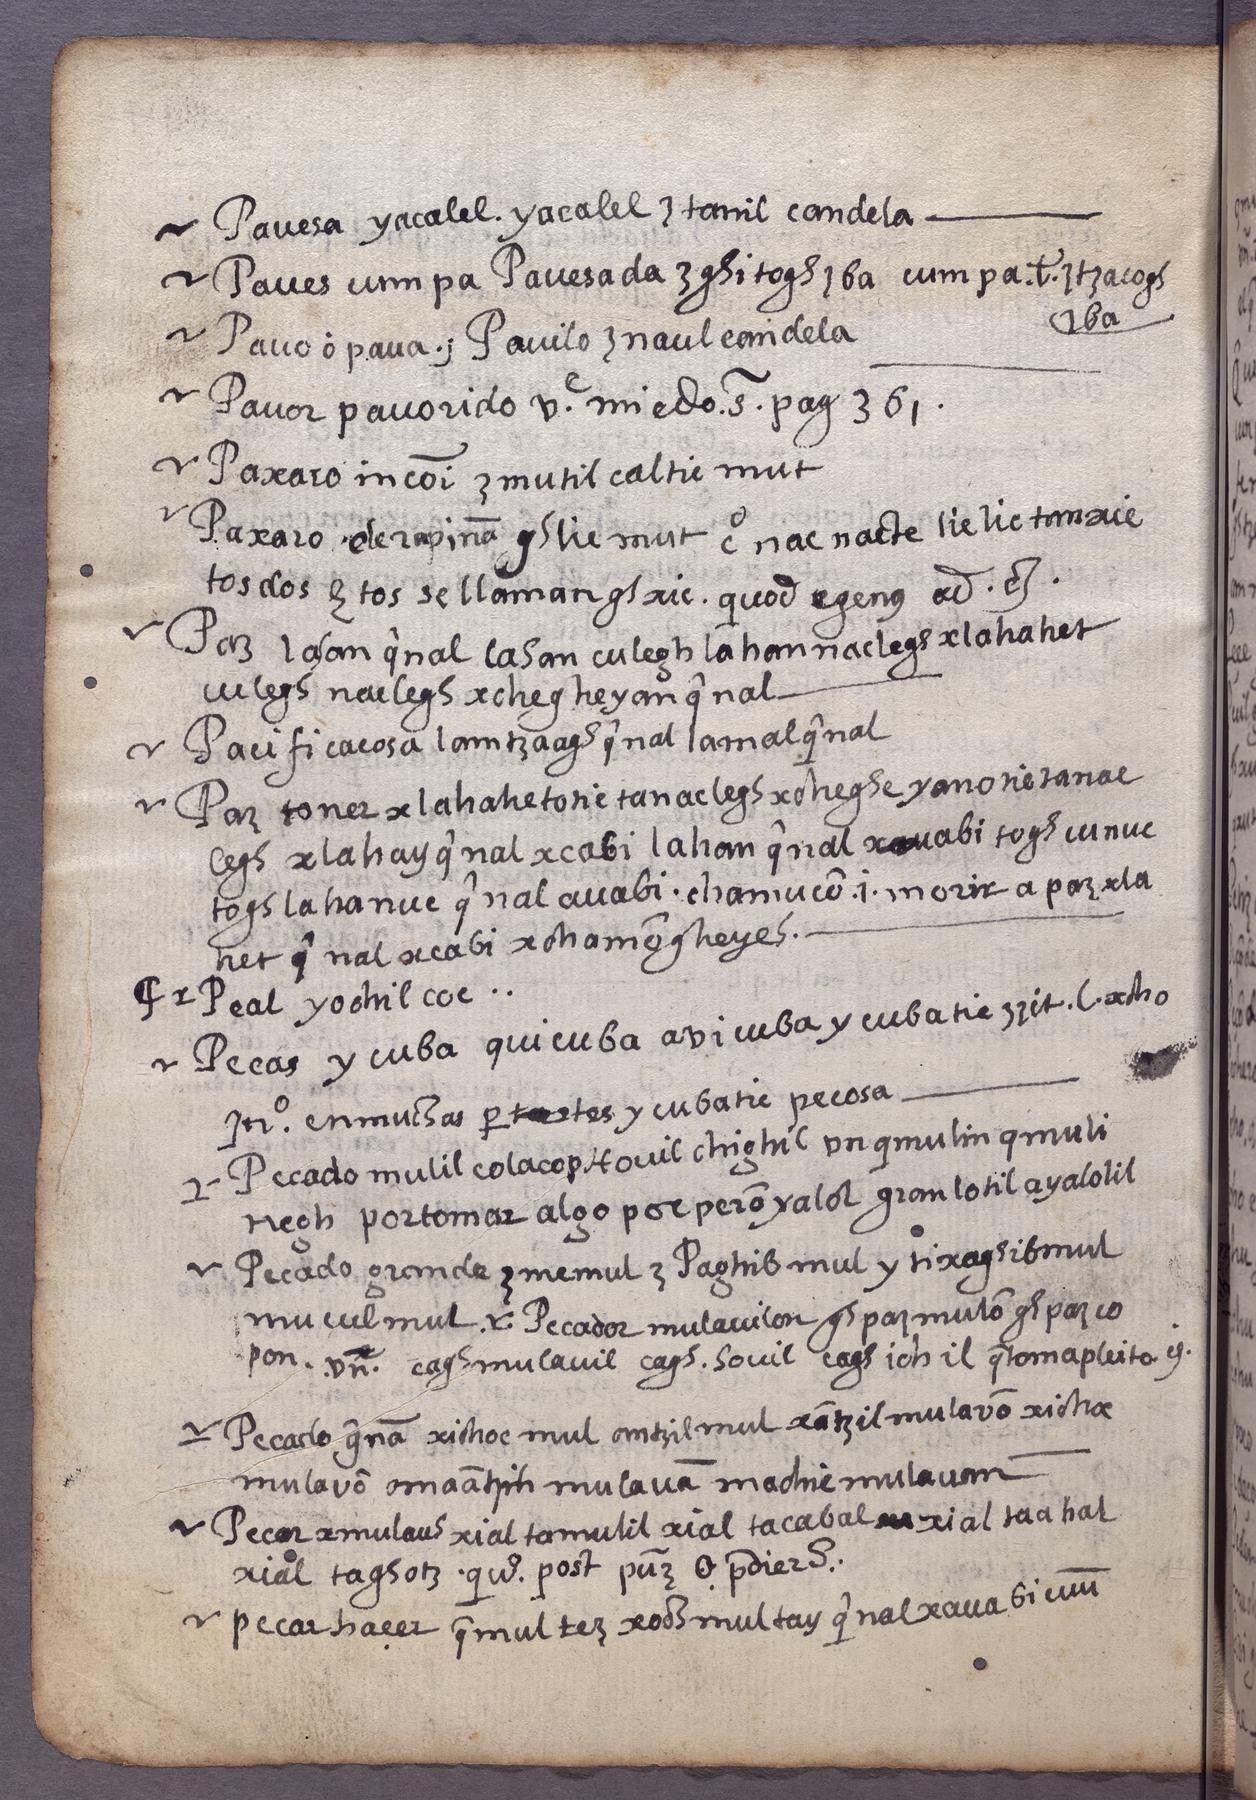 Pauesa yacalel. yacalel ʒ tanil candela
Paues cum pa Pauesada ʒ ghi togh ʒba cum pa .t. ʒtʒacogh
ʒba
Pauo ò paua .j Pauilo ʒ naul candela
Pauor pauorido v.e miedo. s. pag 361.
Paxaro in cōi ʒ mutil caltic mut
Paxaro de rapiña gh lic mut c° nac nacte lic lic tanxic
tosdos tos se llaman gh xic. quod egeng ad.
Paz lahan q̂nal lahan culegh lahan naclegh xlahahet
culegh naclegh xchegheyan q̂nal
Pacificacosa lamtʒaagh q̂nal lamal q̂nal
Paz toner xlahahetotic tanaclegh xcheghe yanotic tanac
legh xlahay q̂nal xcabi lahan q̂nal xauabi togh cunuc
togh lahanuc q̂nal auabi. chamucō .i. morir a paz xla
het q̂nal xcabi xchamōgheyeh.
Peal yochil coc ..
Pecas y cuba qui cuba avi cuba y cubatic ʒʒit .l. xcho
Jtn°. en muchas ꝑ tes y cubatic pecosa
Pecado mulil colacop. touil chighil vn qmulin qmuli
negh por tomar algo por perō yalol gran lotil ayalolil
Pecado grande ʒ me mul ʒ Paghib mul y tixaghibmul
mucul mul .r. Pecador mulauilon gh paz mulō gh paz co
pon. .vn̄. cagh mulauil cagh. Souil cagh ich il q̄ toma pleito.
Pecado q̂nā xichoc mul antʒil mul xātʒil mulavō xichoc
mulavō omaātʒih mulavā machic mulauan
Pecar xmulauh xial tamulil xial tacabal xial taahal
xial taghotʒ .qu°. post
pecar haçer q̄ mul teʒ xoch mul tay q̂nal xaua bi cuū